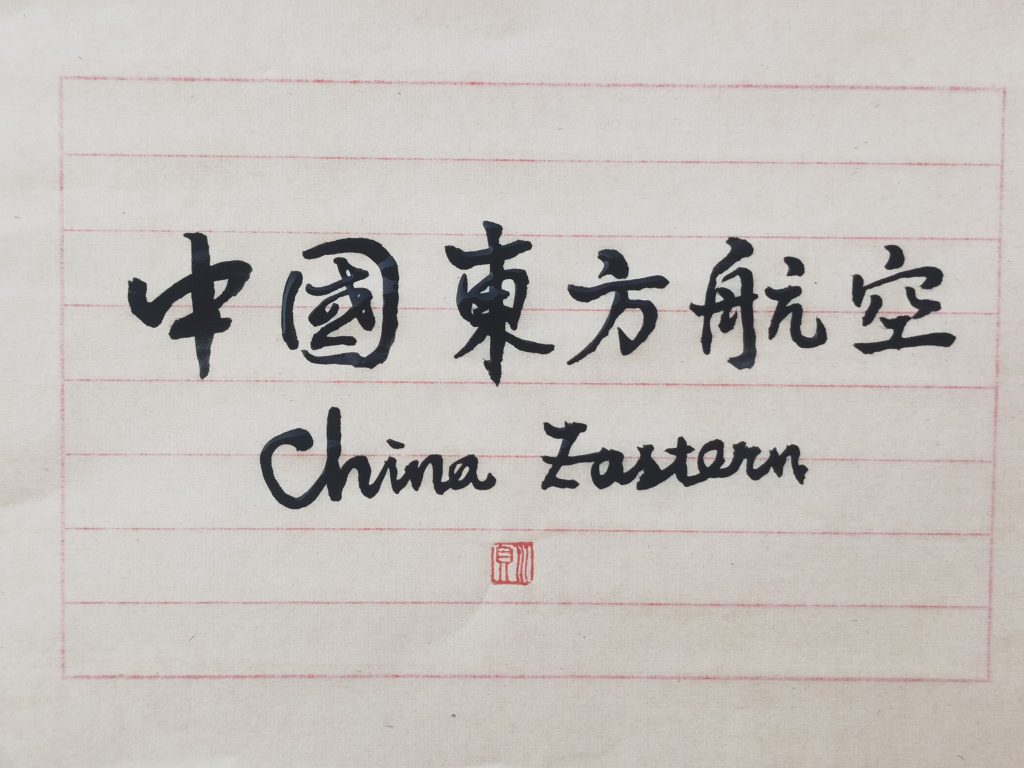 中國東方航空
China Eastern